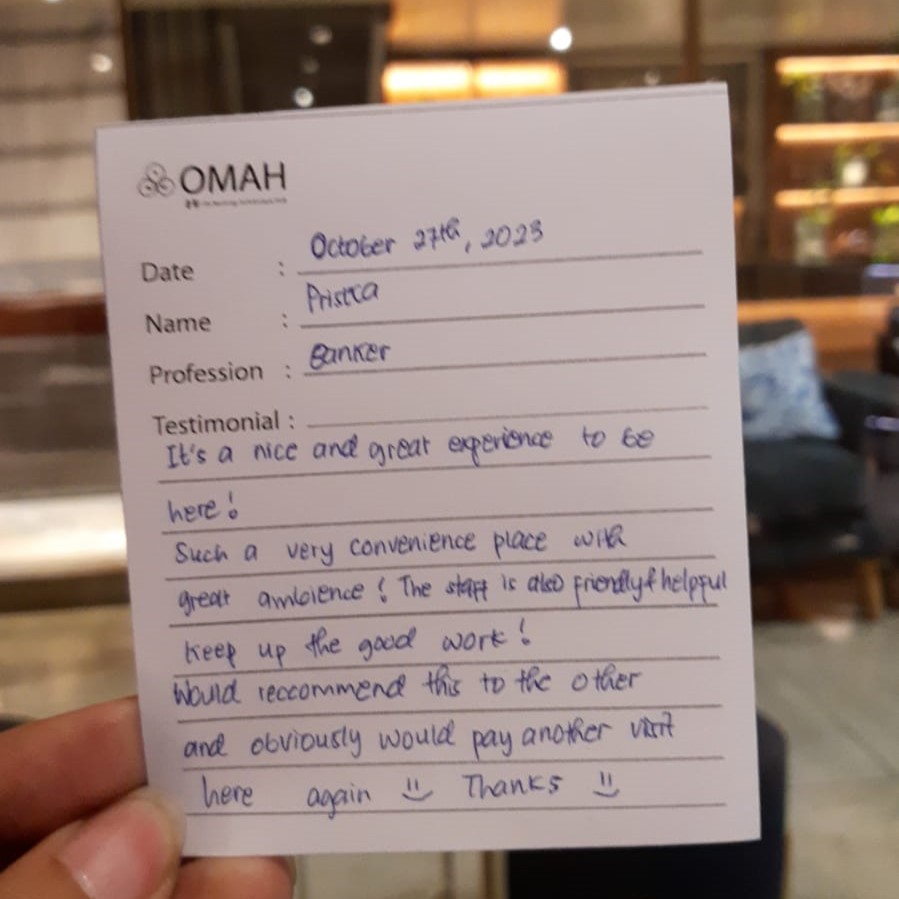 OMAH
Date : October 27th, 2023
Name : Prisca
Profession : Banker
Testimonial :
It's a nice and great experience to be
here!
Such a very convenience place with
great ambience! The staff is also friendly & helpful
keep up the good work!
Would reccommend this to the other
and obviously would pay another visit
here again Thanks